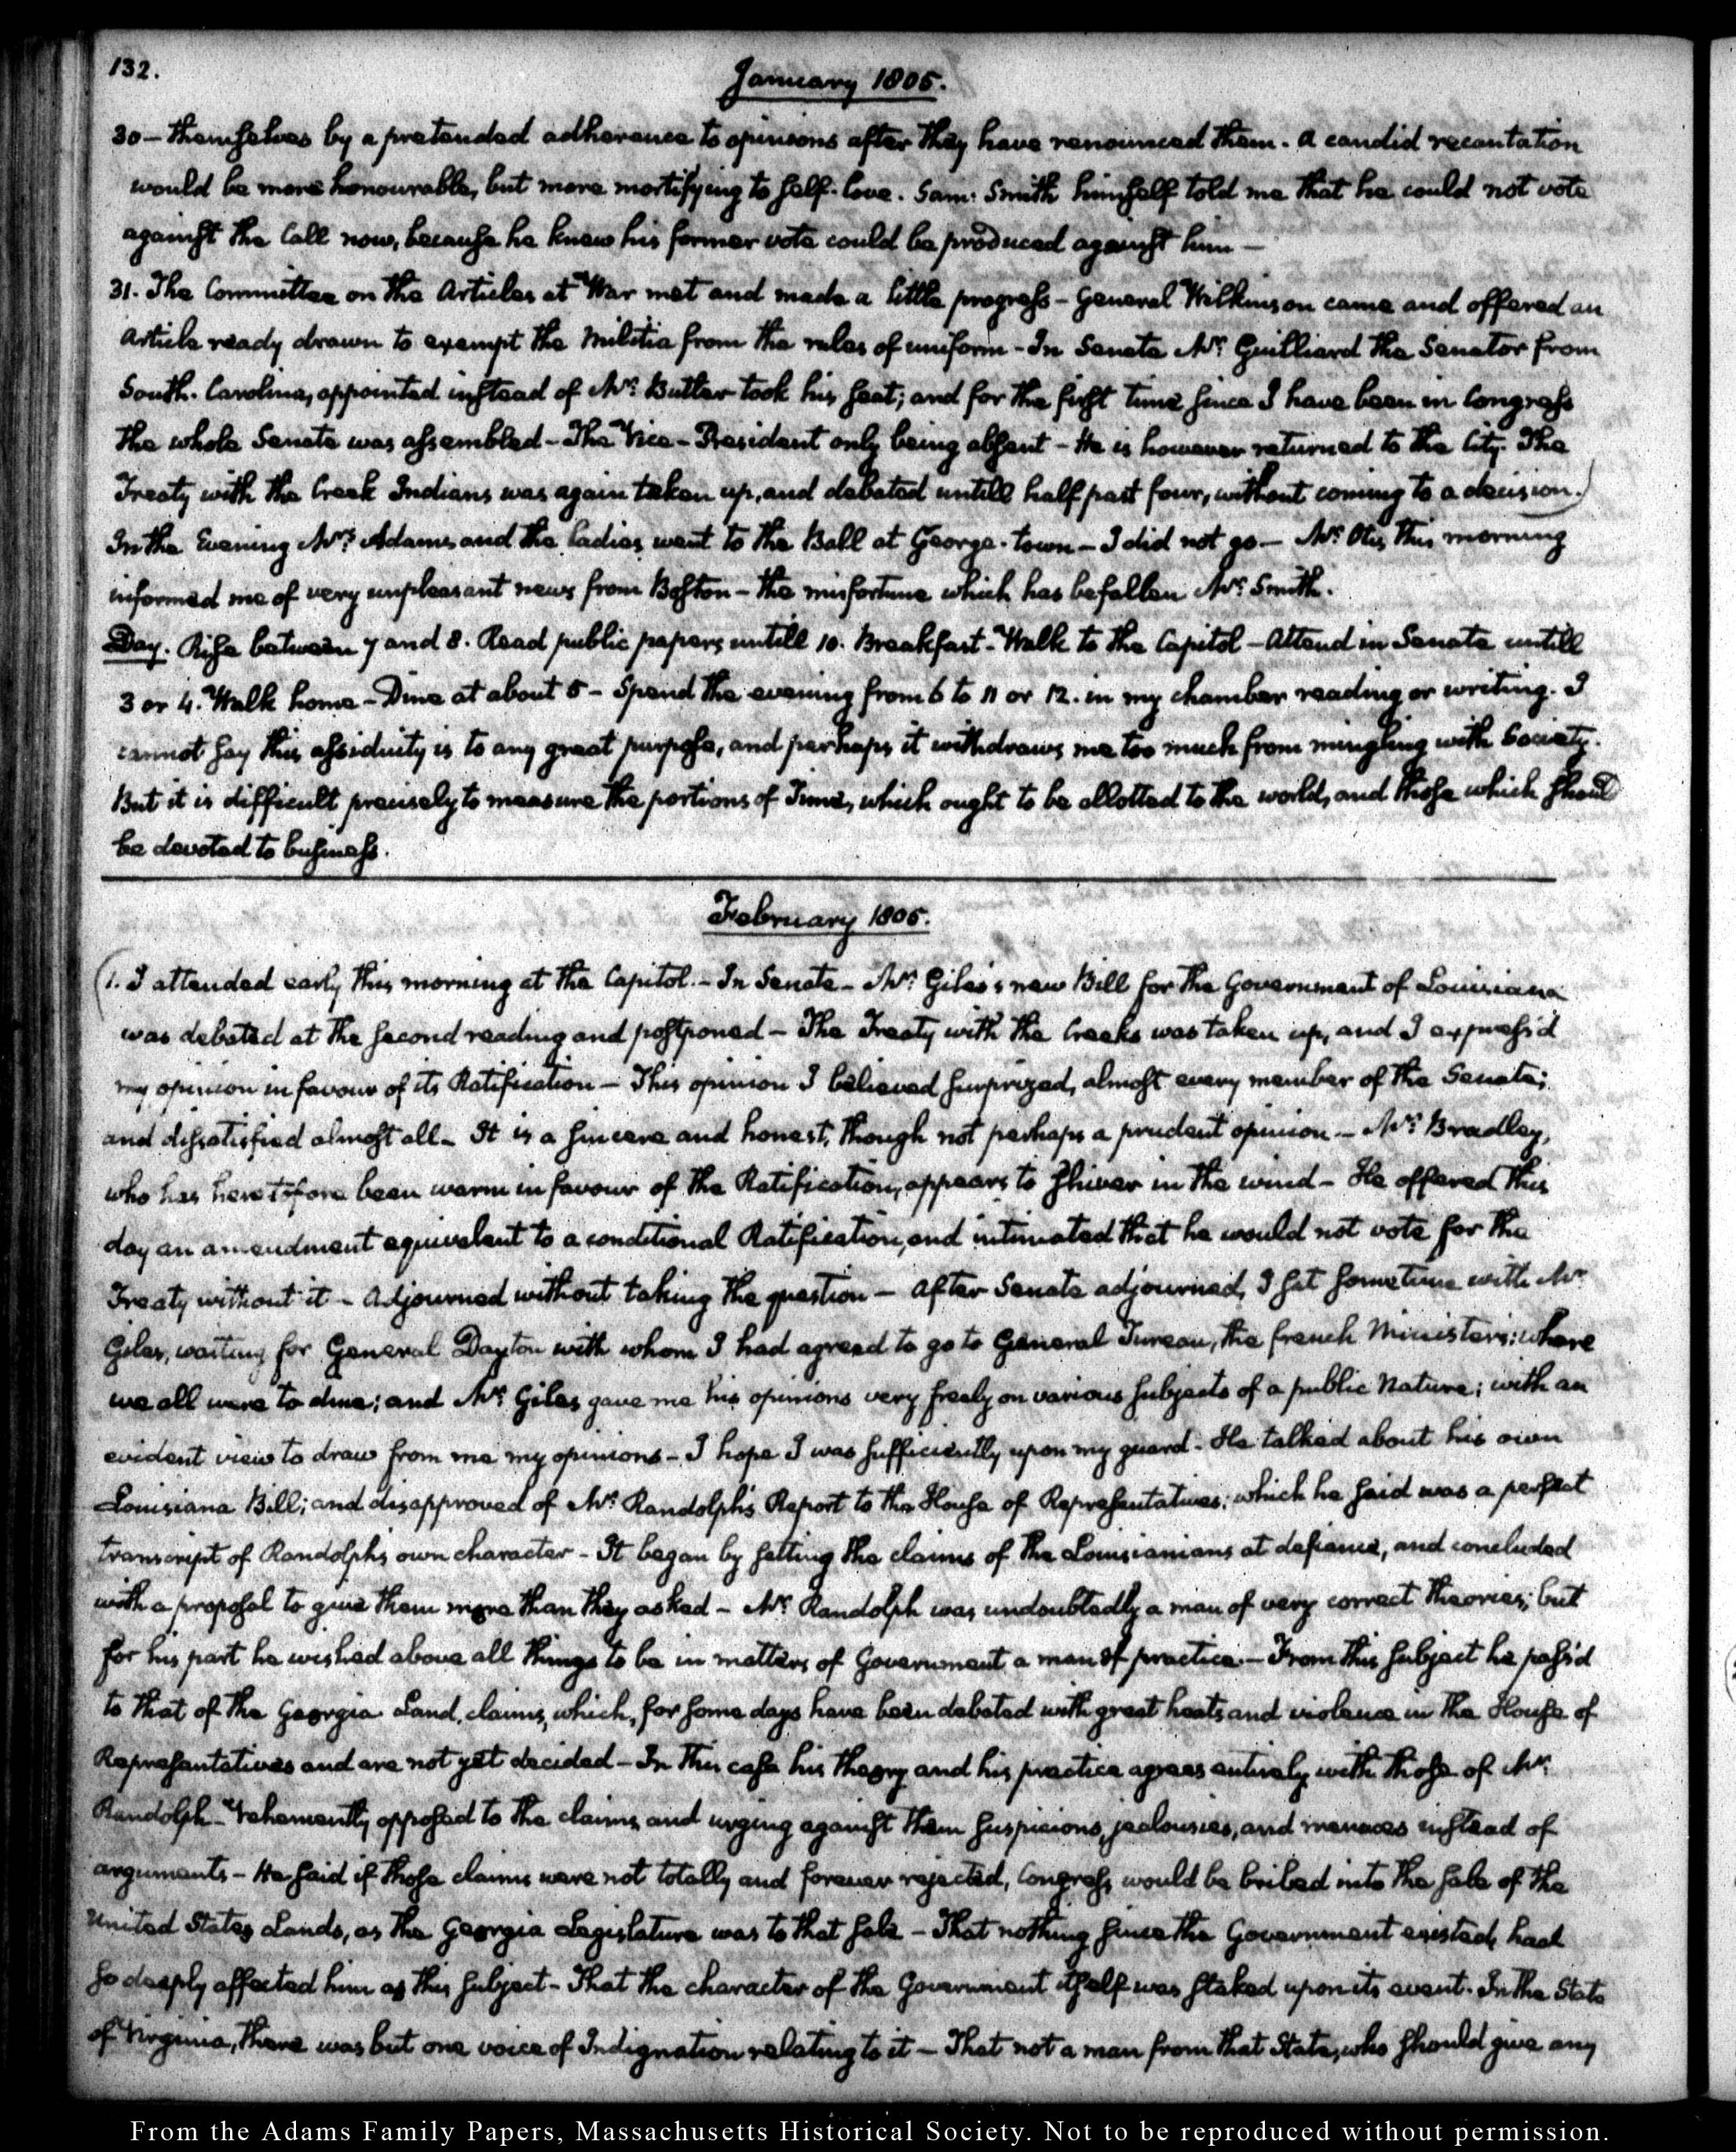 132.
January 1805.
30 – themselves by a pretended adherence to opinions after they have renounced them. A candid recantation
would be more honourable, but more mortifying to self-love. Sam: Smith himself told me that he could not vote
against the call now, because he knew his former vote could be produced against him —
31. The Committee on the Articles at War met and made a little progress – General Wilkinson came and offered an
Article ready drawn to exempt the Militia from the rules of uniform – In Senate Mr. Guilliard the Senator from
South-Carolina, appointed instead of Mr. Butler took his seat; and for the first time since I have been in Congress
the whole Senate was assembled – The Vice-President only being absent – He is however returned to the City. The
Treaty with the Creek Indians was again taken up, and debated untill half past four, without coming to a decision.)
In the Evening Mrs. Adams and the ladies went to the Ball at George-town – I did not go – Mr. Otis this morning
informed me of very unpleasant news from Boston – the misfortune which has befallen Mr. Smith.
Day. Rise between 7 and 8. Read public papers untill 10. Breakfast. Walk to the Capitol – Attend in Senate untill
3 or 4. Walk home – Dine at about 5 – Spend the evening from 6 to 11 or 12. in my chamber reading or writing. I
cannot say this assiduity is to any great purpose, and perhaps it withdraws me too much from mingling with Society.
But it is difficult precisely to measure the portions of Time, which ought to be allotted to the world, and those which should
be devoted to business.
February 1805.
(1. I attended early this morning at the Capitol. – In Senate – Mr. Giles's new Bill for the Government of Louisiana
was debated at the second reading and postponed – The Treaty with the Creeks was taken up, and I express'd
my opinion in favour of its Ratification – This opinion I believed surprized, almost every member of the Senate;
and dissatisfied almost all – It is a sincere and honest, though not perhaps a prudent opinion – Mr. Bradley,
who has heretofore been warm in favour of the Ratification, appears to shiver in the wind – He offered this
day an amendment equivalent to a conditional Ratification, and intimated that he would not vote for the
Treaty without it – Adjourned without taking the question – After Senate adjourned, I sat sometime with Mr.
Giles, waiting for General Dayton with whom I had agreed to go to General Tureau, the french Minister's; where
we all were to dine; and Mr. Giles gave me his opinions very freely on various subjects of a public Nature; with an
evident view to draw from me my opinions – I hope I was sufficiently upon my guard. He talked about his own
Louisiana Bill; and disapproved of Mr. Randolph's Report to the House of Representatives; which he said was a perfect
transcript of Randolph's own character – It began by setting the claims of the Louisianians at defiance, and concluded
with a proposal to give them more than they asked – Mr. Randolph was undoubtedly a man of very correct theories; but
for his part he wished above all things to be in matters of Government a man of practice. – From this subject he pass'd
to that of the Georgia Land, claims, which, for some days have been debated with great heats and violence in the House of
Representatives and are not yet decided – In this case his theory and his practice agrees entirely with those of Mr.
Randolph – Vehemently opposed to the claims and urging against them suspicions, jealousies, and menaces instead of
arguments – He said if those claims were not totally and forever rejected, Congress would be bribed into the sale of the
United States Lands, as the Georgia Legislature was to that sale – That nothing since the Government existed, had
so deeply affected him as this subject – That the character of the Government itself was staked upon its event. In the State
of Virginia, there was but one voice of Indignation relating to it – That not a man from that State, who should give any
From the Adams Family Papers, Massachusetts Historical Society. Not to be reproduced without permission.